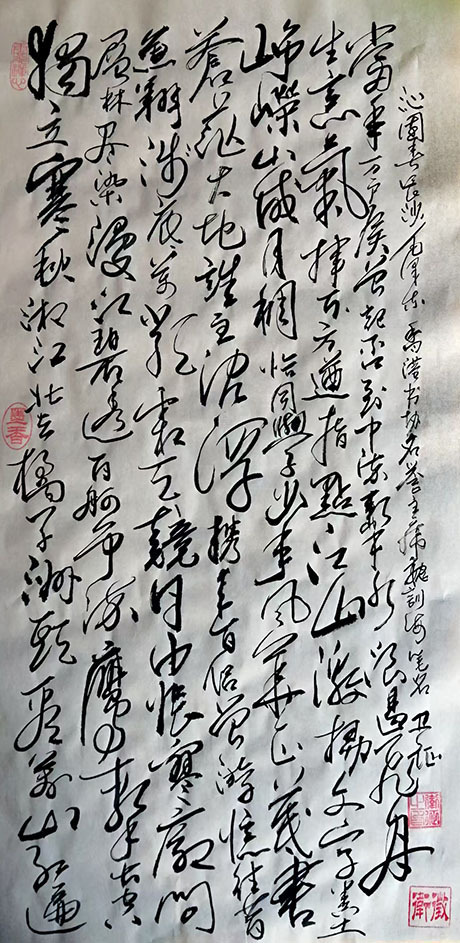 獨立寒秋湘江北去橘子洲頭看萬山紅遍
層林尽染漫江碧透百舸争流鷹擊長空
魚翔淺底萬類霜天競自由悵寥廓問
蒼茫大地誰主沉浮攜來百侣曾游憶往昔
崢嶸歲月稠恰同學少年風華正茂書
生意氣揮斥方遒指點江山激揚文字糞土
當年万户侯曾記否到中流擊水浪遏飛舟
沁園春長沙 毛澤東 香港书协名誉主席 笔名 卫征
衛徵